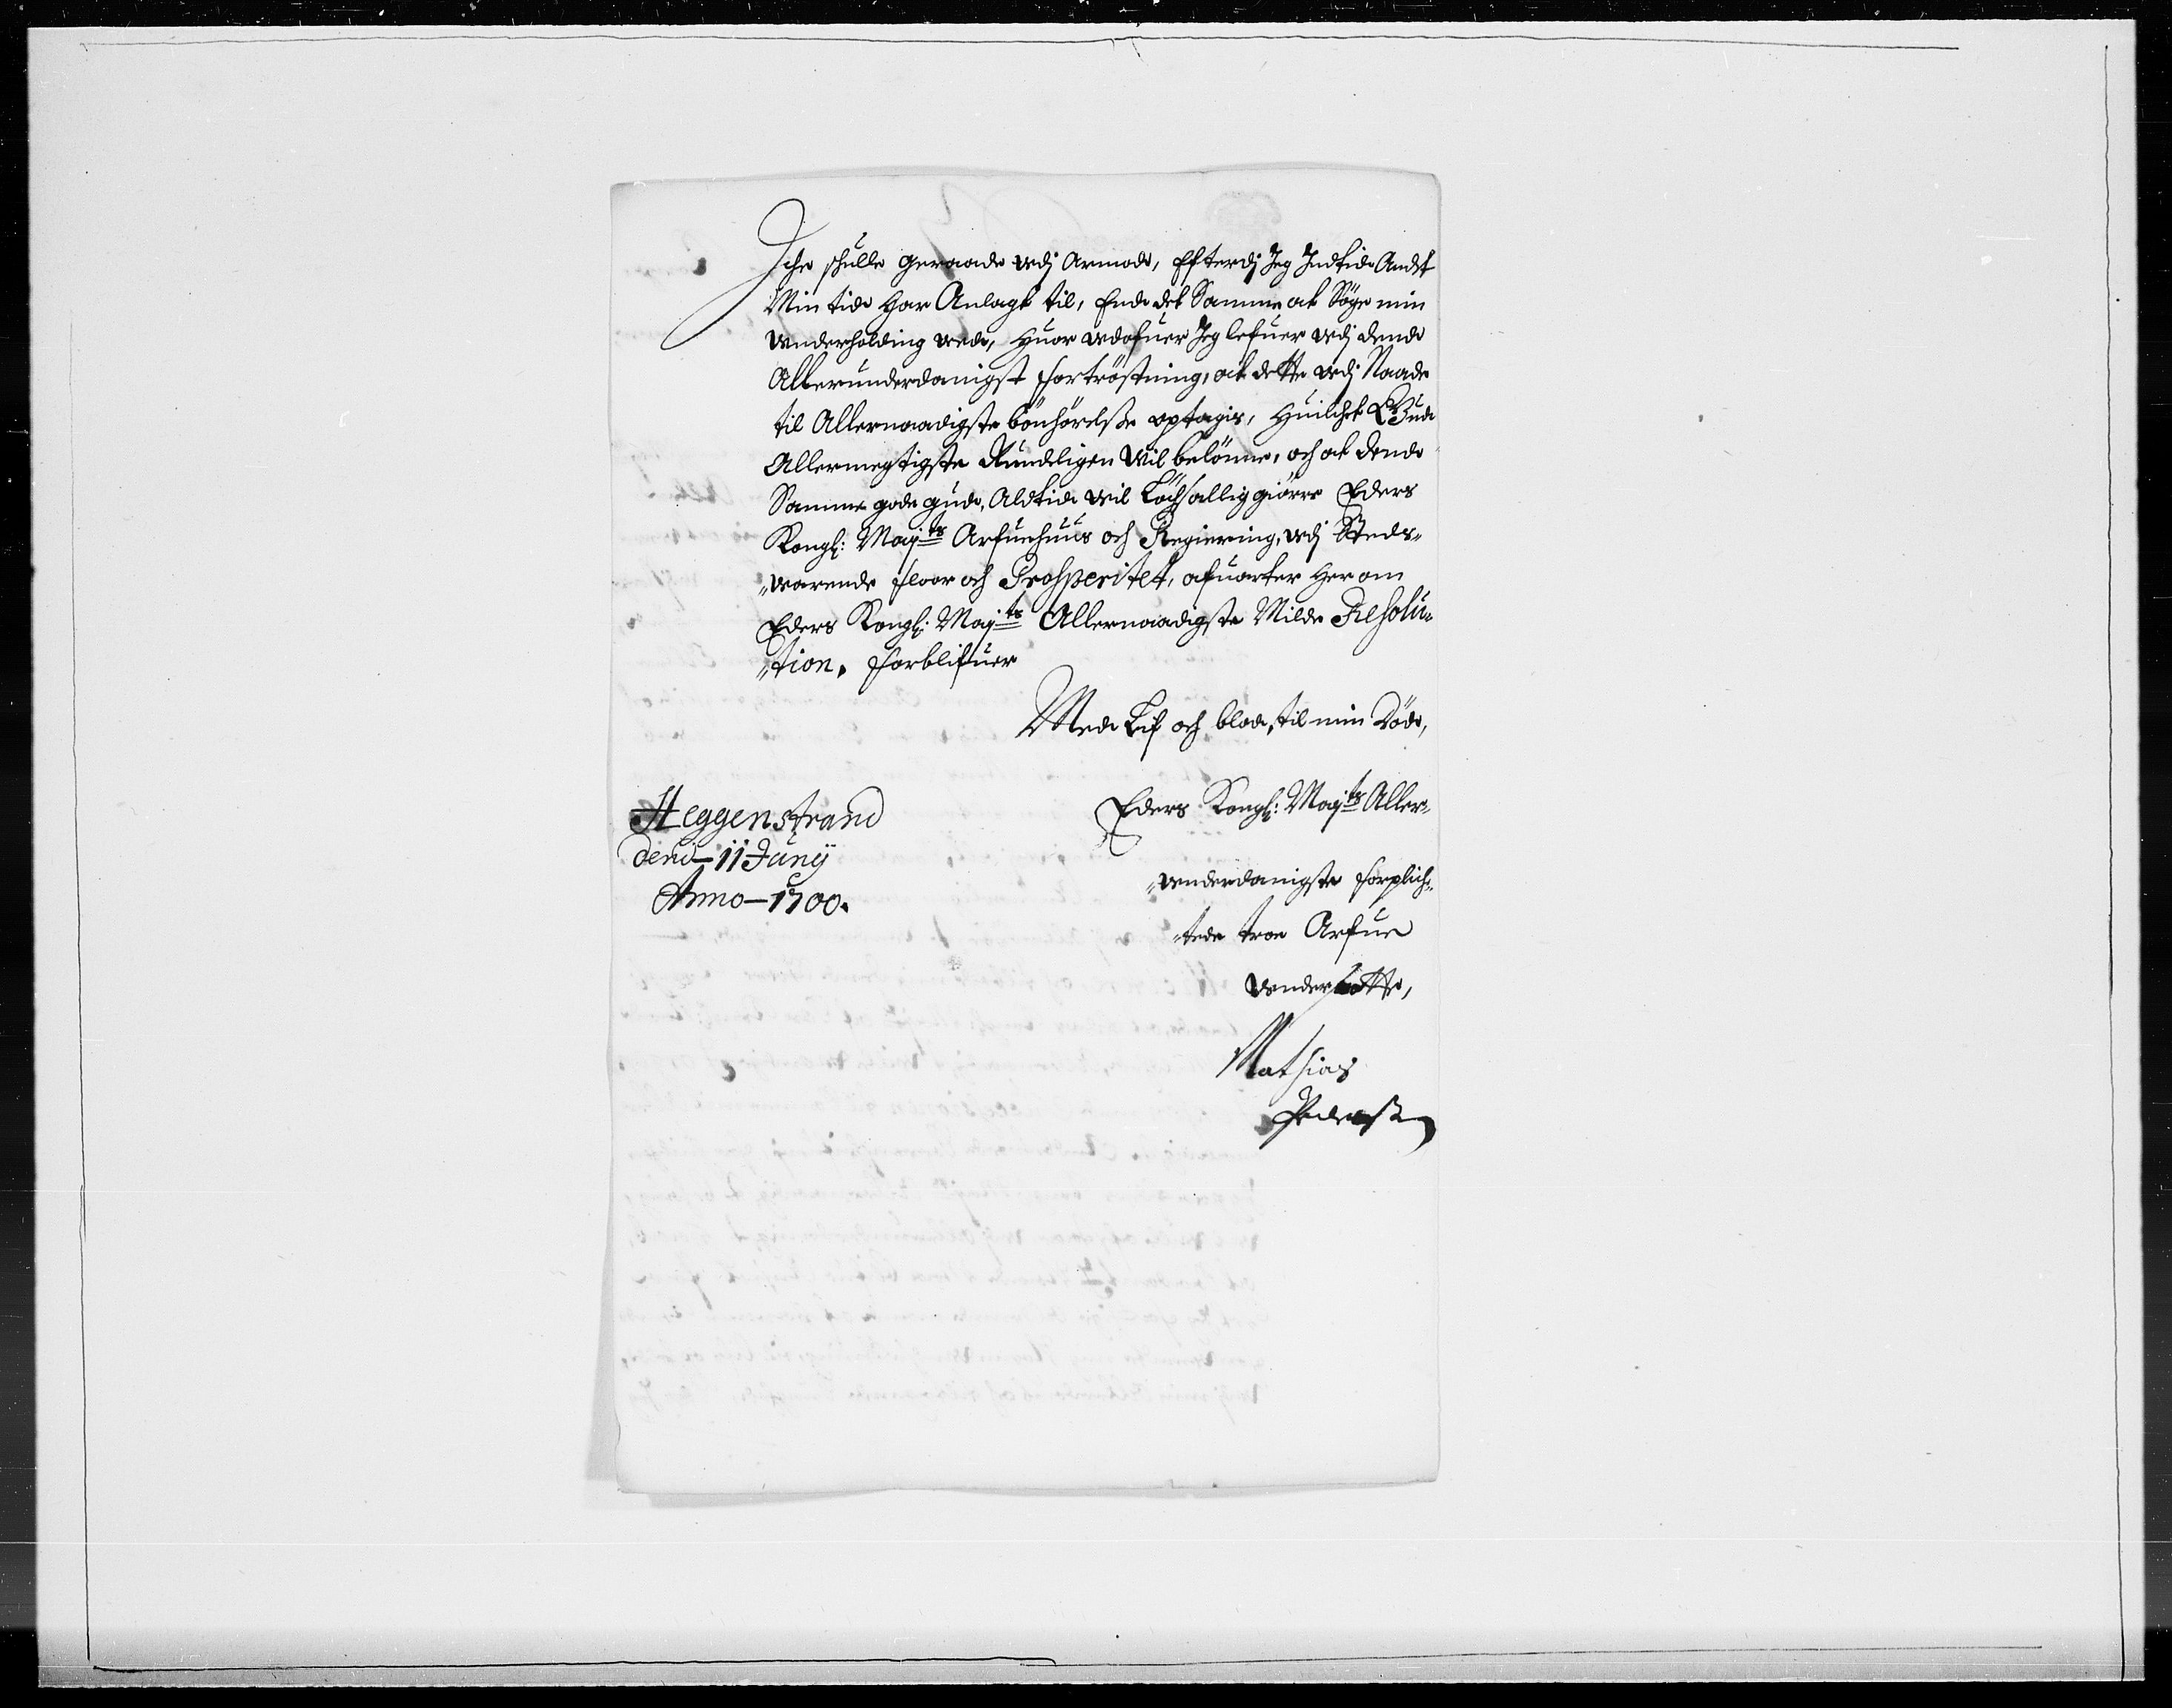 Iche schulle geraade udj Armode, Efterdj Jeg Indtide Andet
Min tide har Anlagt til, Ende det Samme at Søge min
Underholding ved, Huor udofuer Jeg lefuer udj dend
Allerunderdanigst fortröstning, at dette udj Naade
til Allernaadigste bönhörelsze optagis, Huilchet Gud
Allermegtigste Rundeligen Vil belönne, och at dend
Samme gode gud, Aldtid vil Löchsallig giörre Eders
Kongl: Majts Arfuehuus och Regiering, udj Steds„
„varende floor och Prohsperitet, afuarter Her om
Eders Kongl: Majts Allernaadigste Milde Resolu„
„tion. forblifuer
Med Lif och blod, til min Död,
Eders Kongl: Majts Aller„
„underdanigste forplich„
„tede troe Arfue
Undersotte,
Mathias
Pedersen
Heggenstrand
dend 11 Junij
Anno 1700.